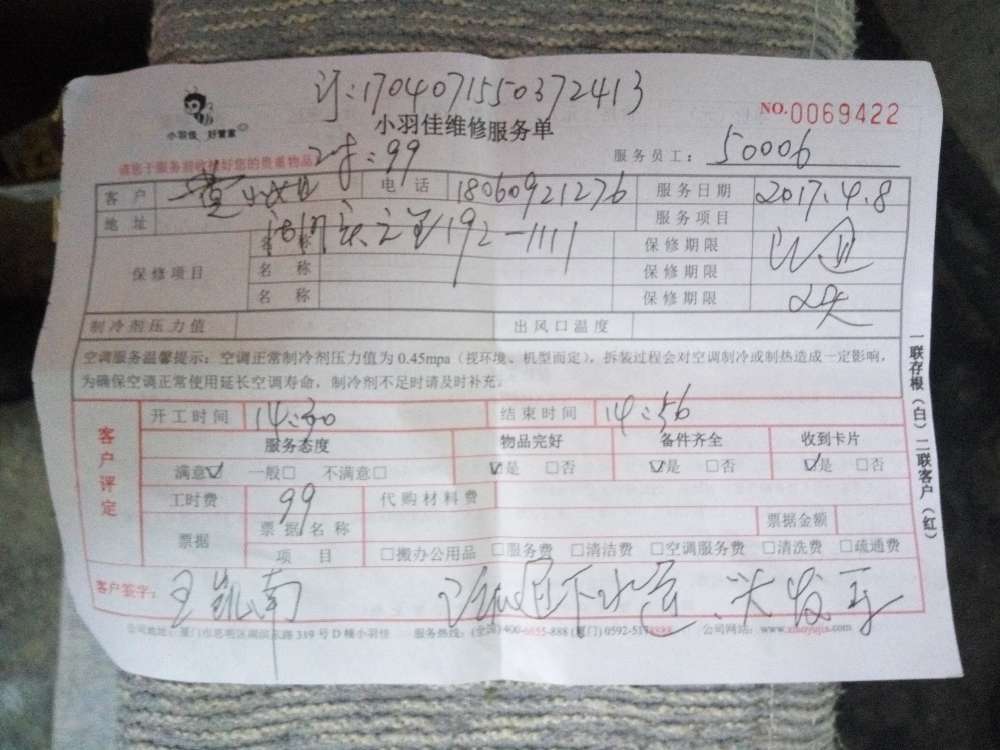 订:1704071550372413
小羽佳 好管家
小羽佳维修服务单
NO.0069422
请您于服务前收捡好您的贵重物品
:99
服务员工: 50006
客户 黄小姐 电话 18060921276 服务日期 2017.4.8
地址 192-1111 服务项目
保修项目 名称 保修期限
名称 保修期限
名称 保修期限 2天
制冷剂压力值 出风口温度
空调服务温馨提示:空调正常制冷剂压力值为0.45mpa(视环境、机型而定),拆装过程会对空调制冷或制热造成一定影响,
为确保空调正常使用延长空调寿命,制冷剂不足时请及时补充。
客户评定
开工时间 14:30 结束时间 14:56
服务态度 物品完好 备件齐全 收到卡片
满意☑ 一般□ 不满意□ ☑是 □否 ☑是 □否 ☑是 □否
工时费 99 代购材料费
票据 票据名称 票据金额
项目 □搬办公用品 □服务费 □清洁费 □空调服务费 □清洗费 □疏通费
客户签字: 王凯南
下水
公司地址:厦门市思明区湖滨东路319号D幢小羽佳 服务热线:(全国)400-6655-888 (厦门)0592-5178888 公司网站:www.xiaoyujia.com
一联存根(白)二联客户(红)